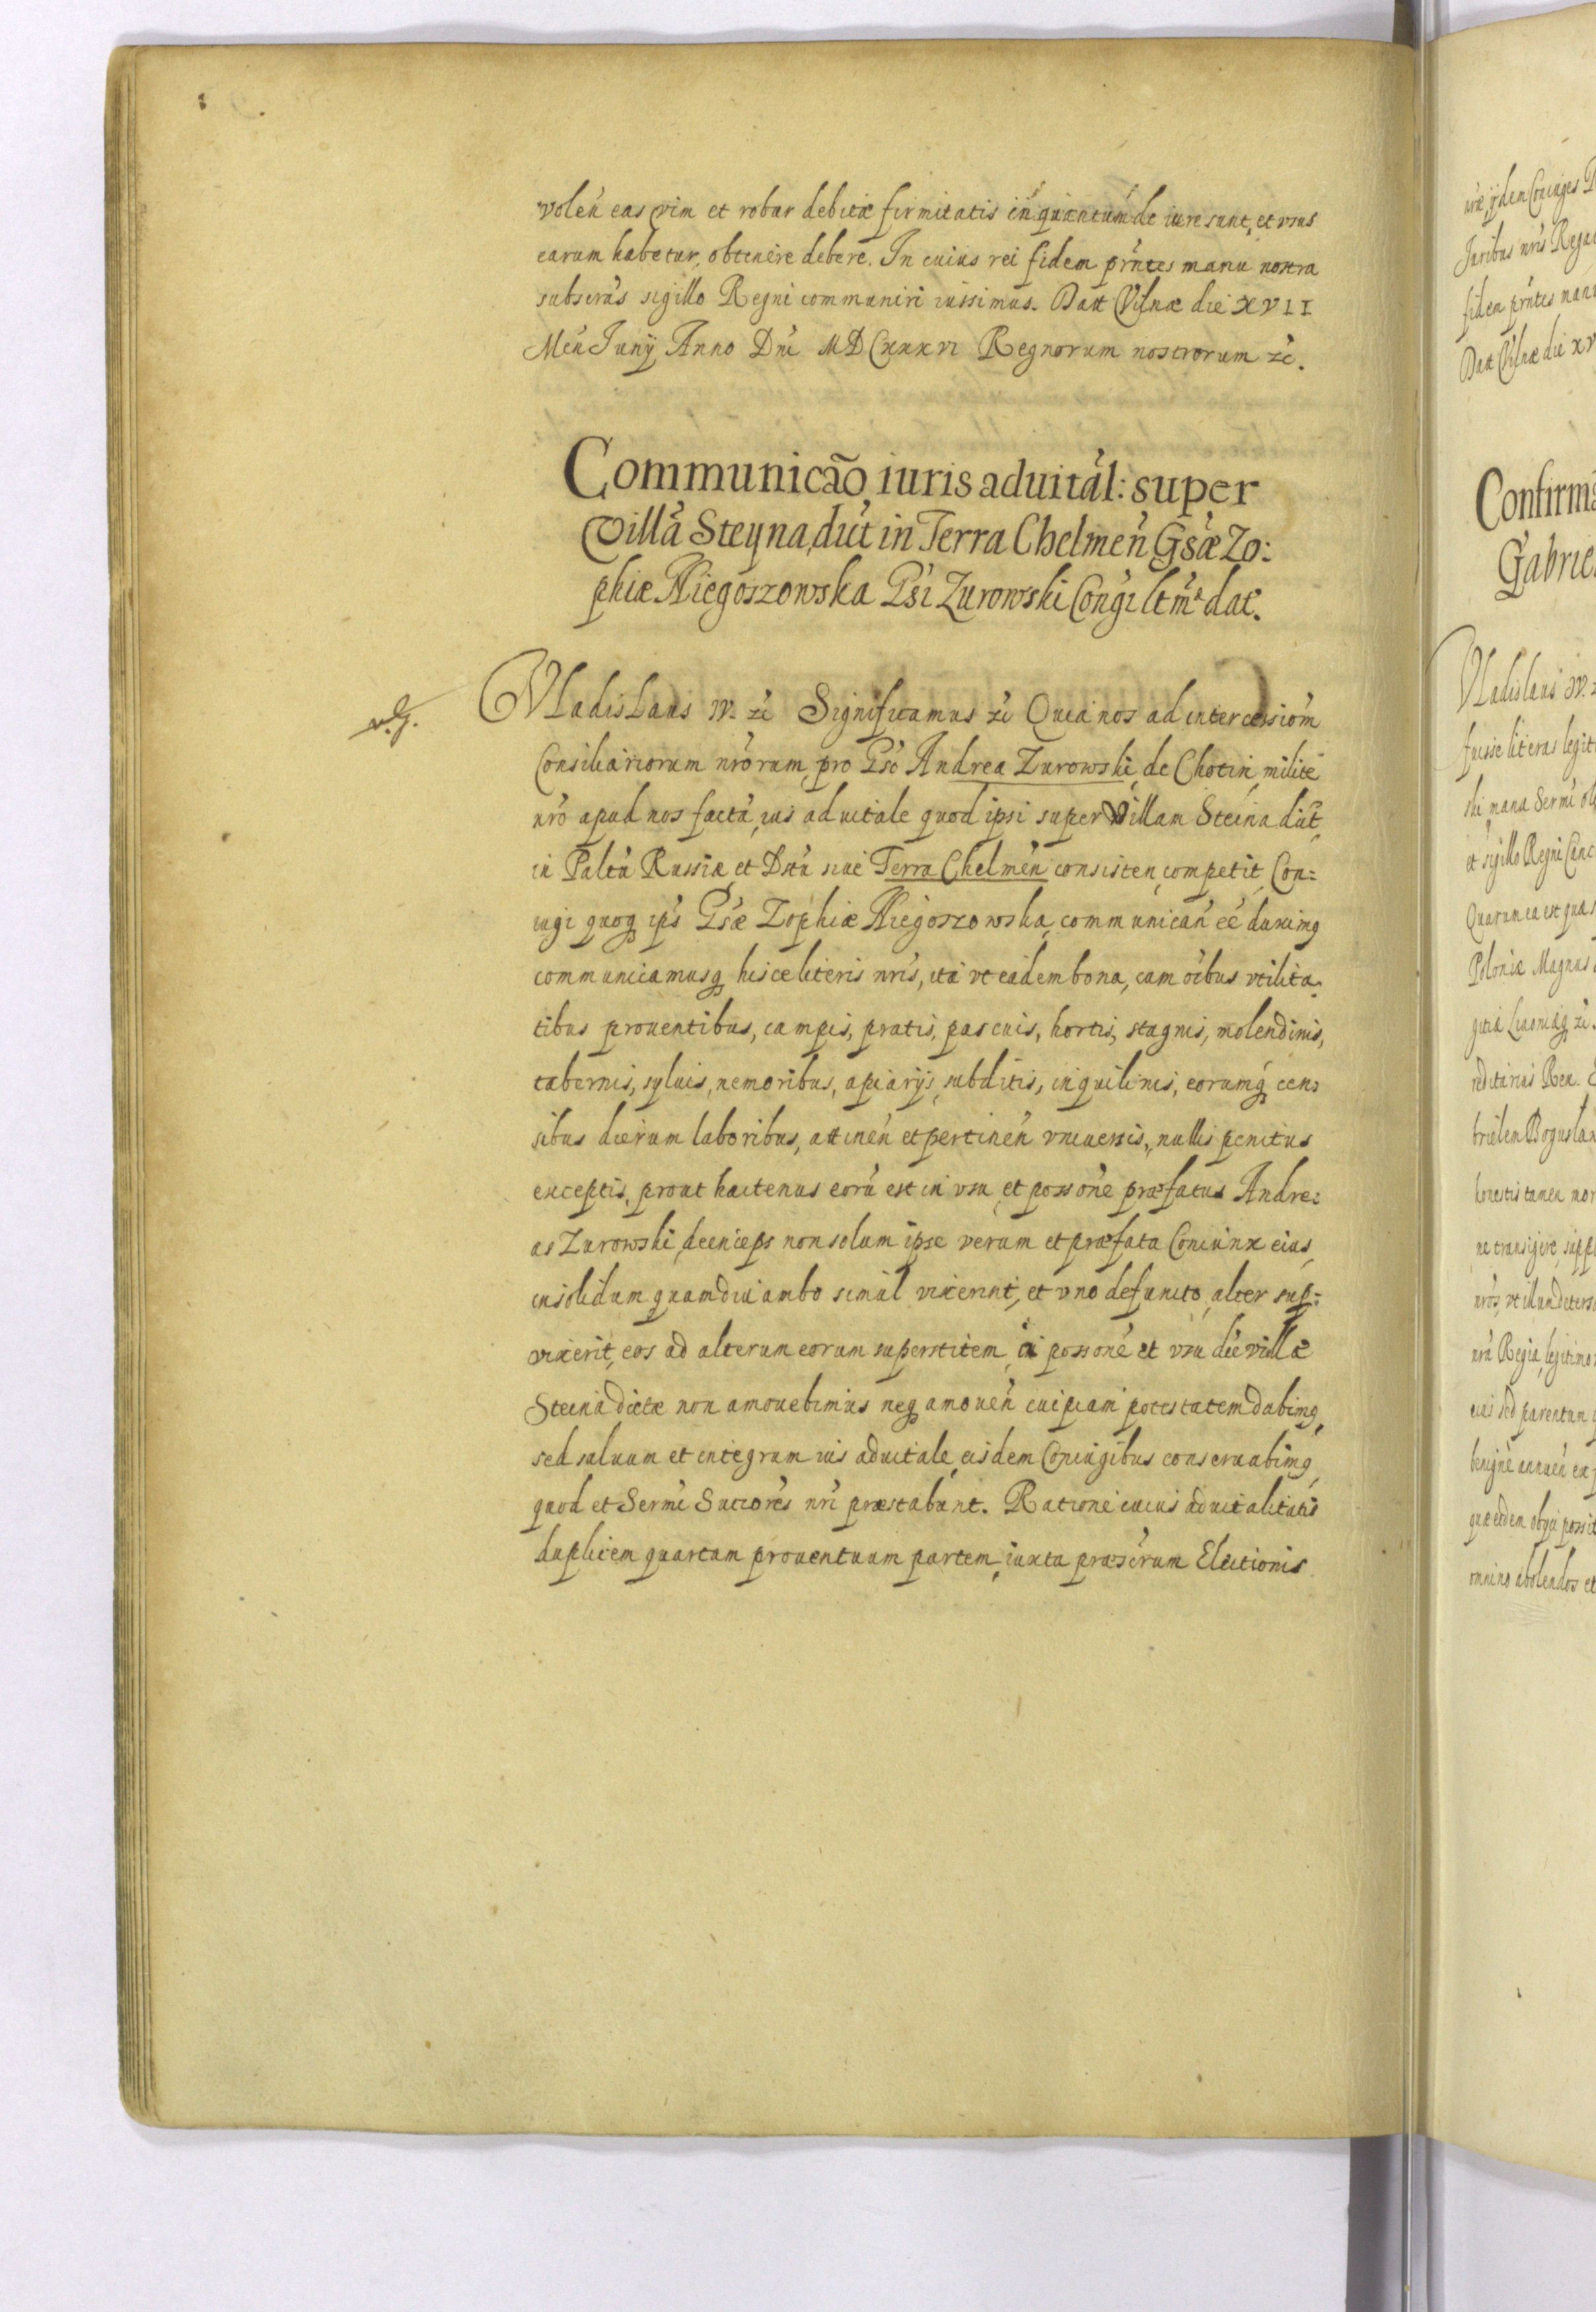 volen̄ eas vim et robur debitæ firmitatis in quantum de iure sunt, et vsus
earum habetur, obtenire debere. In cuius rei fidem prn̄tes manu nostra
subscrās sigillo Regni communiri iussimus. Datt Vilnæ die XVII
Men̄ Junij Anno Dn̄i MDCxxxvi Regnorum nostrorum zc̄.
Communicāo iuris aduitāl: super
Villā Steyna, dict̄ in Terra Chelmen̄ Gsæ Zo:
phiæ Niegoszowska Gsi Zurowski Con̄gi ltm̄e dat̄.
VLadisLaus IV. zc̄ Significamus zc̄ Quia nos ad intercessiom̄
Consiliariorum nrōrum, pro Gso Andrea Zurowski, de Chotin, milite
nrō apud nos factā, ius aduitale quod ipsi super Villam Steina dict̄,
in Paltū Russiæ, et Dstū siue Terra Chelmen̄ consisten, competit, Con=
iugi quoq ips̄ Gsæ Zophiæ Niegoszowska, communican̄ eē duximg
communicamusq hisce literis nrīs, ita vt eadem bona, cum oībus vtilita=
tibus prouentibus, campis, pratis, pascuis, hortis, stagnis, molendinis,
tabernis, syluis, nemoribus, apiarijs, subditis, inquilinis, eorumq cen=
sibus dierum laboribus, attinen̄ et pertinen̄ vniuersis, nullis penitus
exceptis, prout hactenus eorū est in vsu, et possōne præfatus Andre=
as Zurowski, deenceps non solum ipse verum et præfata Coniunx eius,
insolidum quamdiu ambo simul vixerint, et vno defuncto, alter sup=
vixerit, eos ad alterum eorum superstitem, à possōne et vsu dc̄æ villæ
Steina dictæ non amouebimus neq amouen̄ cuipiam potestatem dabimg,
sed saluum et integrum ius aduitale, eisdem Coniugibus conseruabimg,
quod et Sermi Succorēs nrī præstabunt. Ratione cuius aduitalitatis
duplicem quartam prouentuum partem, iuxta præscrum Electionis
nræ, ijdem Coniuges
Juribus nrīs
fidem prn̄tes
Datt Vilnæ die
Confirm
Gabrie
VLadislaus IV.
fuisse literas
ski manu Sermi
et sigillo Regni
Quarum ea est
Poloniæ Magnus